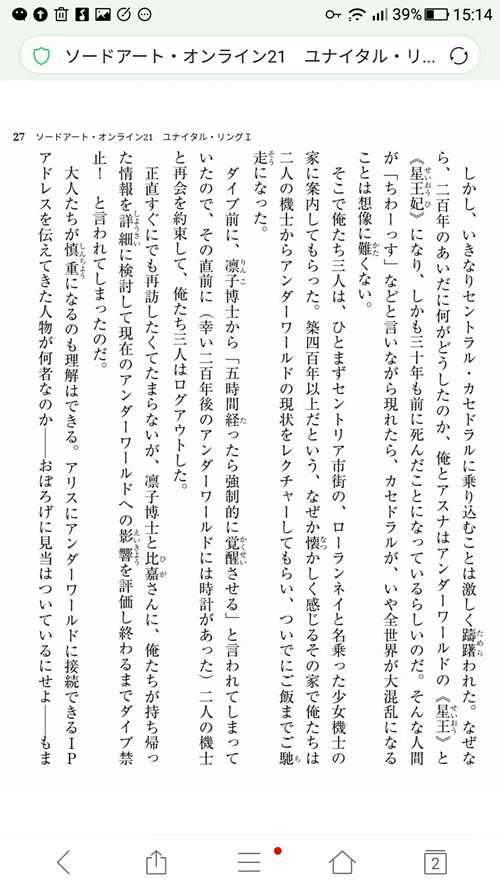 39% 15:14
ソードアート・オンライン21 ユナイタル・リ...
27 ソードアート・オンライン21 ユナイタル・リングⅠ
しかし、いきなりセントラル・カセドラルに乗り込むことは激しく躊躇われた。なぜな
ら、二百年のあいだに何がどうしたのか、俺とアスナはアンダーワールドの《星王》と
《星王妃》になり、しかも三十年も前に死んだことになっているらしいのだ。そんな人間
が「ちわーっす」などと言いながら現れたら、カセドラルが、いや全世界が大混乱になる
ことは想像に難くない。
そこで俺たち三人は、ひとまずセントリア市街の、ローランネイと名乗った少女機士の
家に案内してもらった。築四百年以上だという、なぜか懐かしく感じるその家で俺たちは
二人の機士からアンダーワールドの現状をレクチャーしてもらい、ついでにご飯までご馳
走になった。
ダイブ前に、凛子博士から「五時間経ったら強制的に覚醒させる」と言われてしまって
いたので、その直前に（幸い二百年後のアンダーワールドには時計があった）二人の機士
と再会を約束して、俺たち三人はログアウトした。
正直すぐにでも再訪したくてたまらないが、凛子博士と比嘉さんに、俺たちが持ち帰っ
た情報を詳細に検討して現在のアンダーワールドへの影響を評価し終わるまでダイブ禁
止！ と言われてしまったのだ。
大人たちが慎重になるのも理解はできる。アリスにアンダーワールドに接続できるＩＰ
アドレスを伝えてきた人物が何者なのか――おぼろげに見当はついているにせよ――もま
2